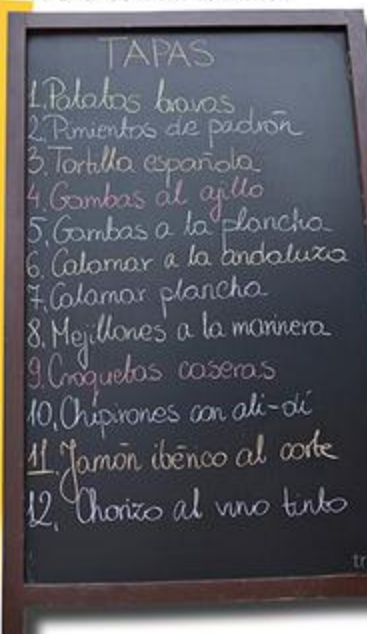 TAPAS
1. Patatas bravas
2. Pimientos de padrón
3. Tortilla española
4. Gambas al ajillo
5. Gambas a la plancha
6. Calamar a la andaluza
7. Calamar plancha
8. Mejillones a la marinera
9. Croquetas caseras
10. Chipirones con ali-oli
11. Jamón ibérico al corte
12. Chorizo al vino tinto